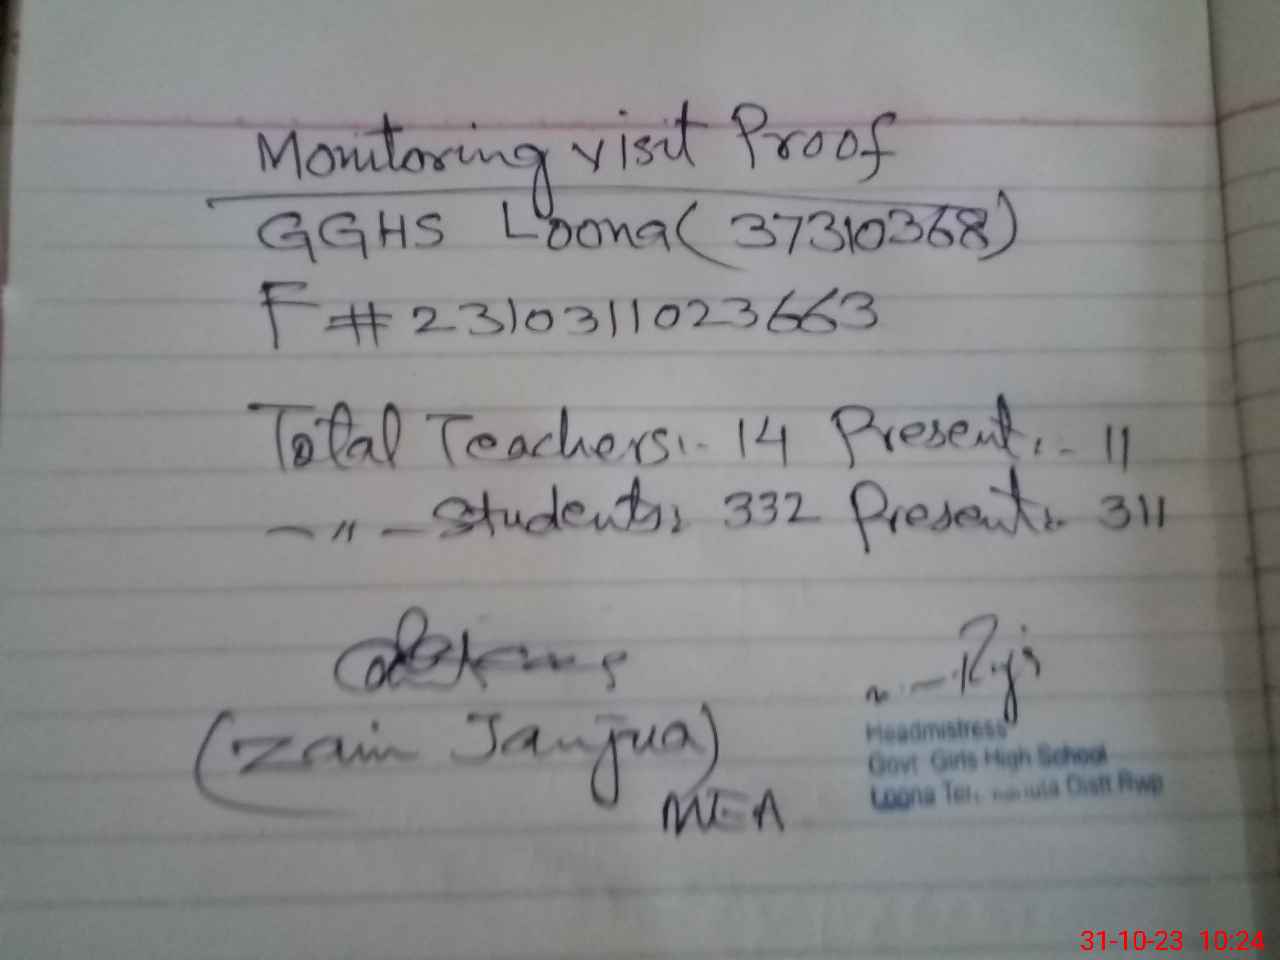 Monitoring visit Proof
GGHS Loona (37310368)
F # 2310311023663
Total Teachers:- 14 Present:- 11
-〃- Students: 332 Present: 311
(Zain Janjua)
MEA
Headmistress
Govt Girls High School
Loona Distt Rwp
31-10-23 10:24